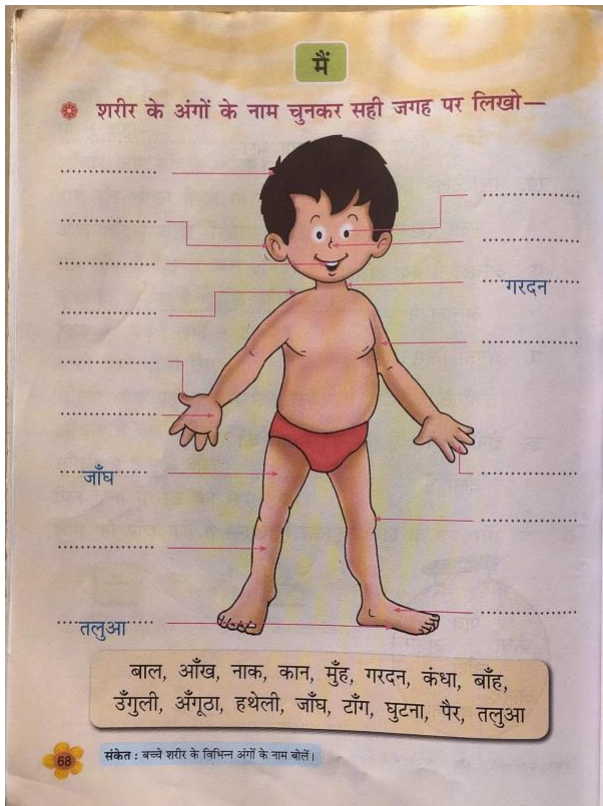 मैं
शरीर के अंगों के नाम चुनकर सही जगह पर लिखो—
गरदन
जाँघ
तलुआ
बाल, आँख, नाक, कान, मुँह, गरदन, कंधा, बाँह,
उँगुली, अँगूठा, हथेली, जाँघ, टाँग, घुटना, पैर, तलुआ
68
संकेत : बच्चे शरीर के विभिन्न अंगों के नाम बोलें।